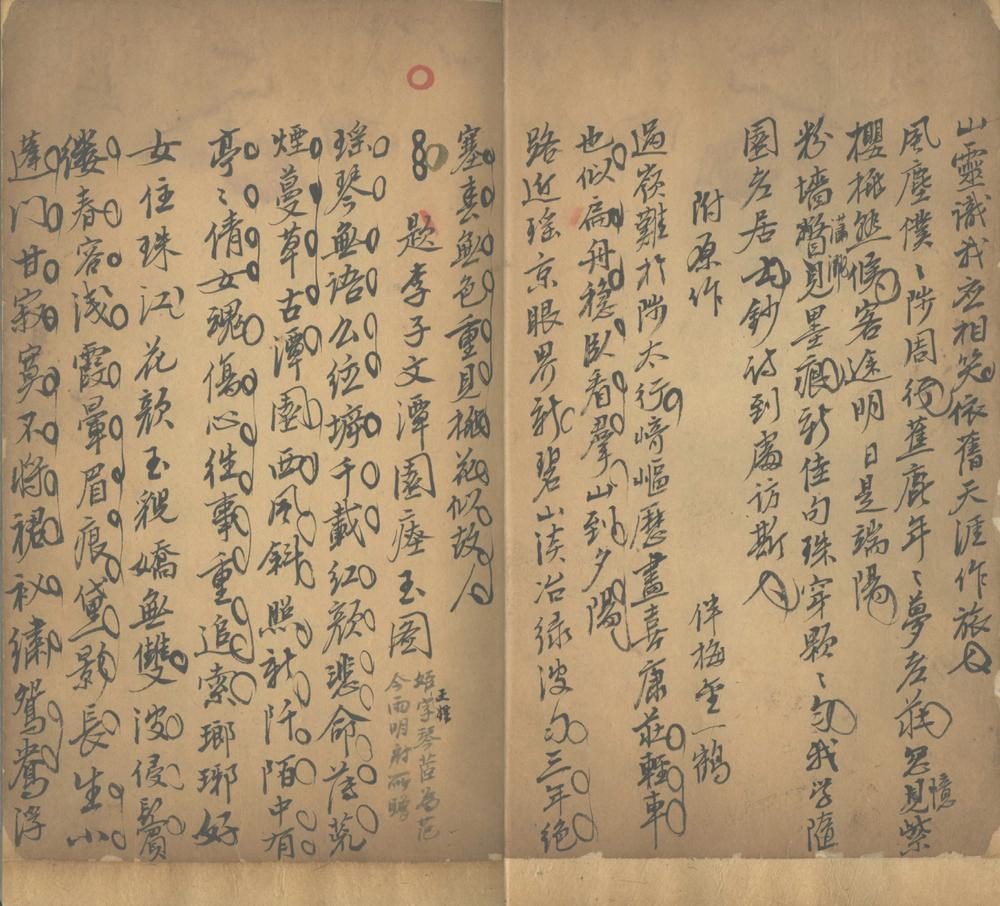 山靈識我應相笑依舊天涯作旅人
風塵僕〻陟周行蕉鹿年〻夢在莊忽見憶紫
櫻桃態候客途明日是端陽
粉墻瞥見墨痕新瀟灑佳句珠穿顆〻勻我學隨
園左居士鈔詩到處訪斯人
附原作
伴梅盦一鶴
過嶺難於陟太行崎嶇歷盡喜康莊輕車
也似扁舟穩臥看羣山到夕陽
路近瑤京眼界新碧山淡冶綠波勻三年絕
塞春無色重見桃花似故人
題李子文潭園瘞玉圖
玉姓
字琴苕為范
今雨明府所贈
瑤琴無語么絃擗千載紅顏悲命薄荒
煙蔓草古潭園西風斜照新阡陌中有
亭〻倩女魂傷心往事重追索瑯琊好
女住珠江花顏玉貌嬌無雙波侵鬢
縷春容淺霞暈眉痕黛影長生小
蓬門甘寂寞不將裙衩繡鴛鴦浮